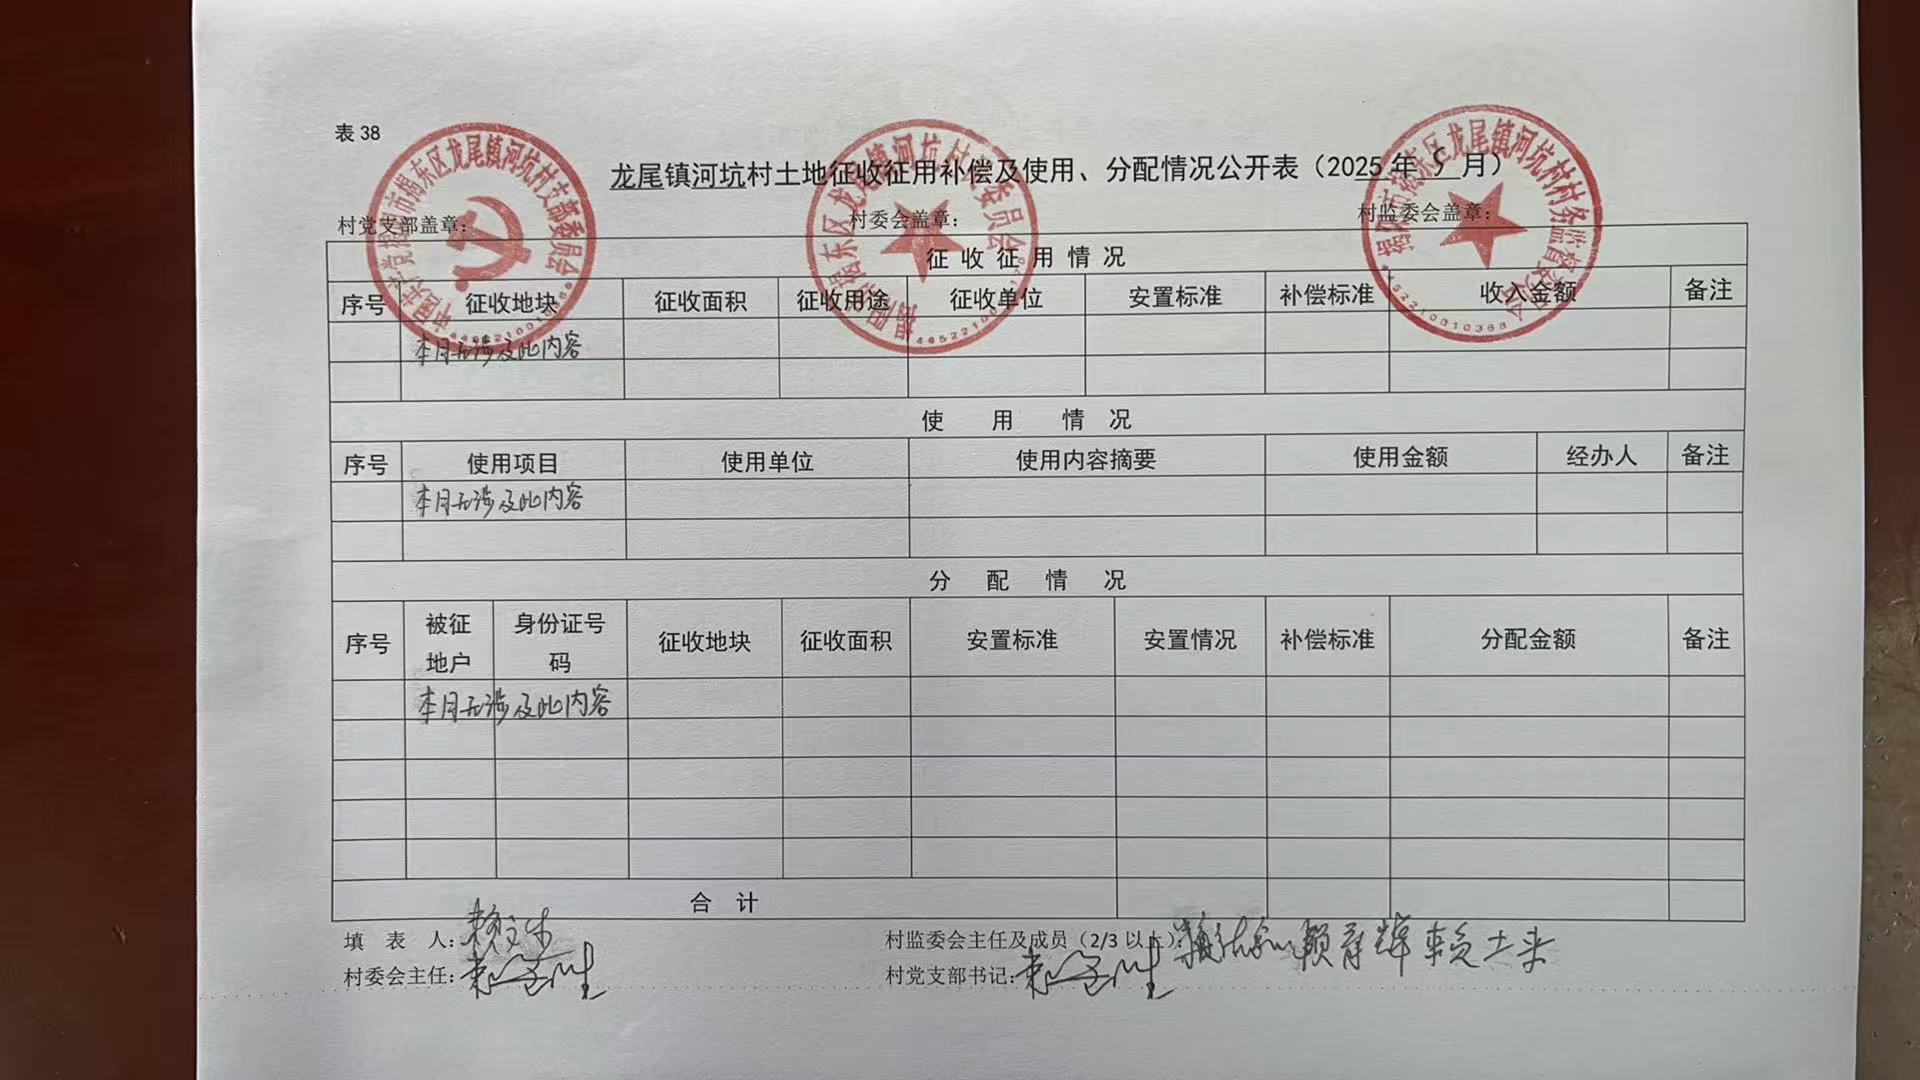 表 38
龙尾镇河坑村土地征收征用补偿及使用、分配情况公开表（2025 年 5 月）
村党支部盖章： 村委会盖章： 村监委会盖章：
征 收 征 用 情 况
序号 征收地块 征收面积 征收用途 征收单位 安置标准 补偿标准 收入金额 备注
本月无涉及此内容
使 用 情 况
序号 使用项目 使用单位 使用内容摘要 使用金额 经办人 备注
本月无涉及此内容
分 配 情 况
序号 被征地户 身份证号码 征收地块 征收面积 安置标准 安置情况 补偿标准 分配金额 备注
本月无涉及此内容
合 计
填 表 人： 村监委会主任及成员（2/3 以上）：
村委会主任： 村党支部书记：
中国共产党揭阳市揭东区龙尾镇河坑村支部委员会
揭阳市揭东区龙尾镇河坑村村民委员会
揭阳市揭东区龙尾镇河坑村村务监督委员会